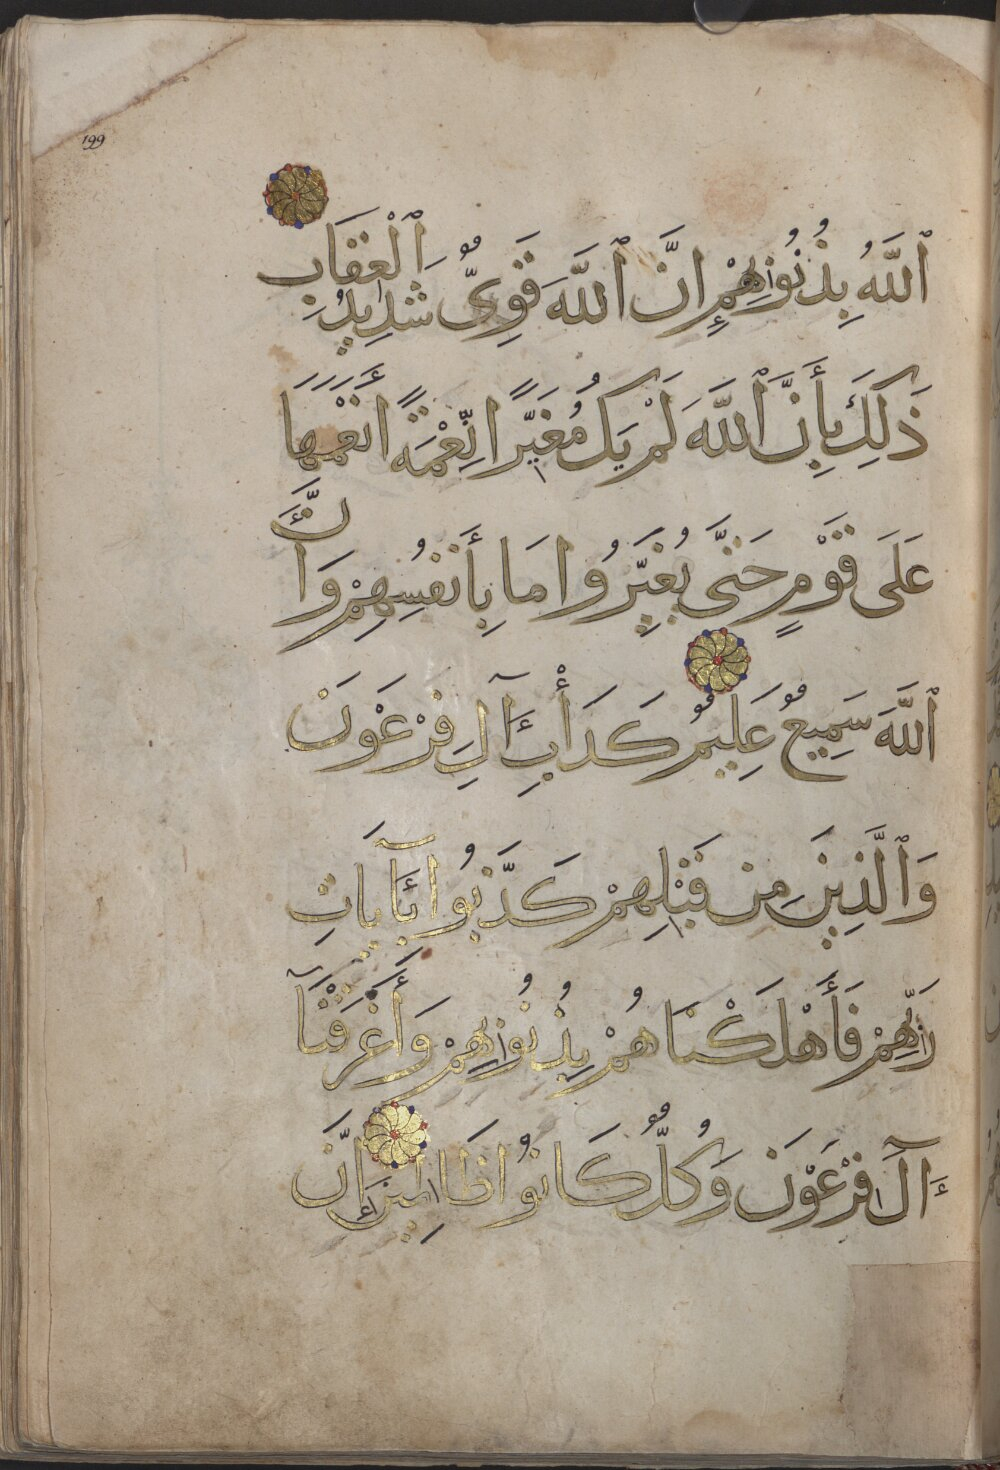 199
ٱللَّهُ بِذُنُوبِهِمْ إِنَّ ٱللَّهَ قَوِىٌّ شَدِيدُ ٱلْعِقَابِ
ذَلِكَ بِأَنَّ ٱللَّهَ لَمْ يَكُ مُغَيِّرًا نِّعْمَةً أَنْعَمَهَا
عَلَى قَوْمٍ حَتَّى يُغَيِّرُوا مَا بِأَنفُسِهِمْ وَأَنَّ
ٱللَّهَ سَمِيعٌ عَلِيمٌ كَدَأْبِ ءَآلِ فِرْعَوْنَ
وَٱلَّذِينَ مِن قَبْلِهِمْ كَذَّبُوا بِـَٔآيَاتِ
رَبِّهِمْ فَأَهْلَكْنَاهُمْ بِذُنُوبِهِمْ وَأَغْرَقْنَآ
ءَآلَ فِرْعَوْنَ وَكُلٌّ كَانُوا ظَالِمِينَ إِنَّ